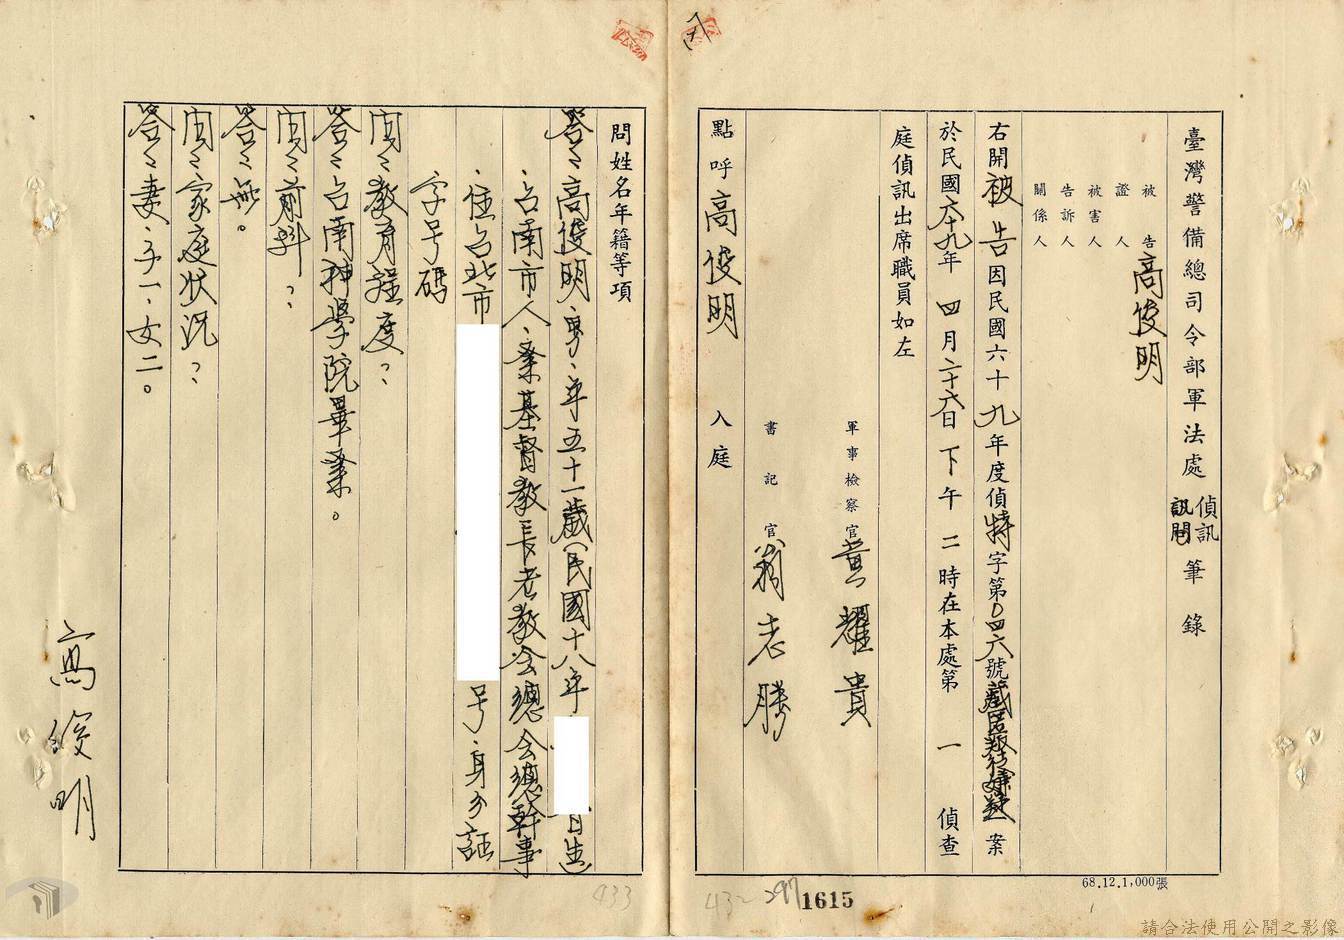 臺灣警備總司令部軍法處偵訊訊問筆錄
被告高俊明
證人
被害人
告訴人
關係人
右開被告因民國六十九年度偵特字第0四六號藏匿叛徒嫌疑案
於民國六十九年四月二十六日下午二時在本處第一偵查
庭偵訊出席職員如左
軍事檢察官黃耀貴
書記官翁志勝
點呼高俊明入庭
68.12.1,000張
1615
問姓名年籍等項
答:高俊明、男、年五十一歲(民國十八年 月 日生
、台南市人、業基督教長老教會總會總幹事
、住台北市 号、身分証
字号碼
問:教育程度?
答:台南神學院畢業。
問:前科?
答:無。
問:家庭狀況?
答:妻、子一、女二。
高俊明
433
432
297
請合法使用公開之影像